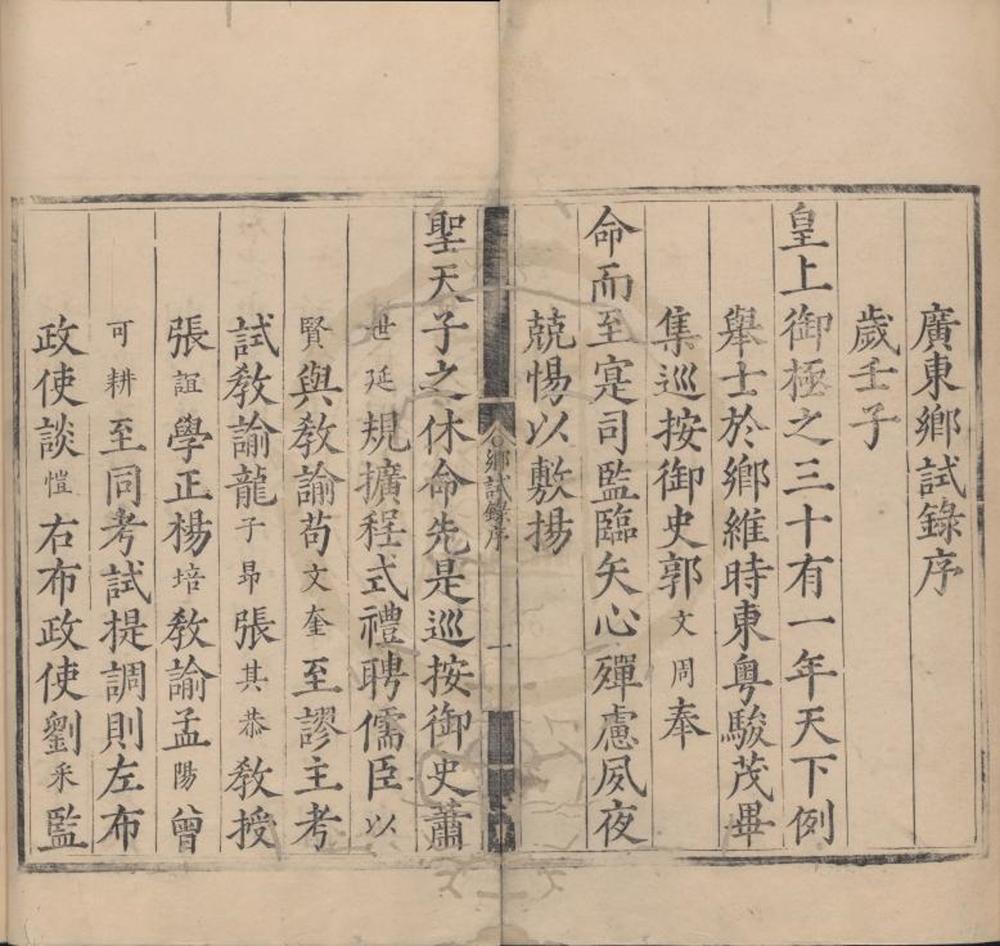 廣東鄉試錄序
歲壬子
皇上御極之三十有一年天下例
舉士於鄉維時東粤駿茂畢
集巡按御史郭文周奉
命而至寔司監臨矢心殫慮夙夜
兢惕以敷揚
鄉試錄序 一
聖天子之休命先是巡按御史蕭
世延規擴程式禮聘儒臣以
賢與教諭苟文奎至謬主考
試教諭龍子昻張其恭教授
張誼學正楊培教諭孟陽曾
可耕至同考試提調則左布
政使談愷右布政使劉釆監